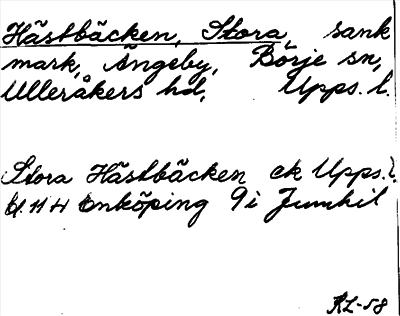 Hästbäcken, Stora, sank
mark, Ängeby, Börje sn,
Ulleråkers hd, Upps. l.
Stora Hästbäcken ek Upps. l.
11 H Enköping 9i Jumkil
RL-58